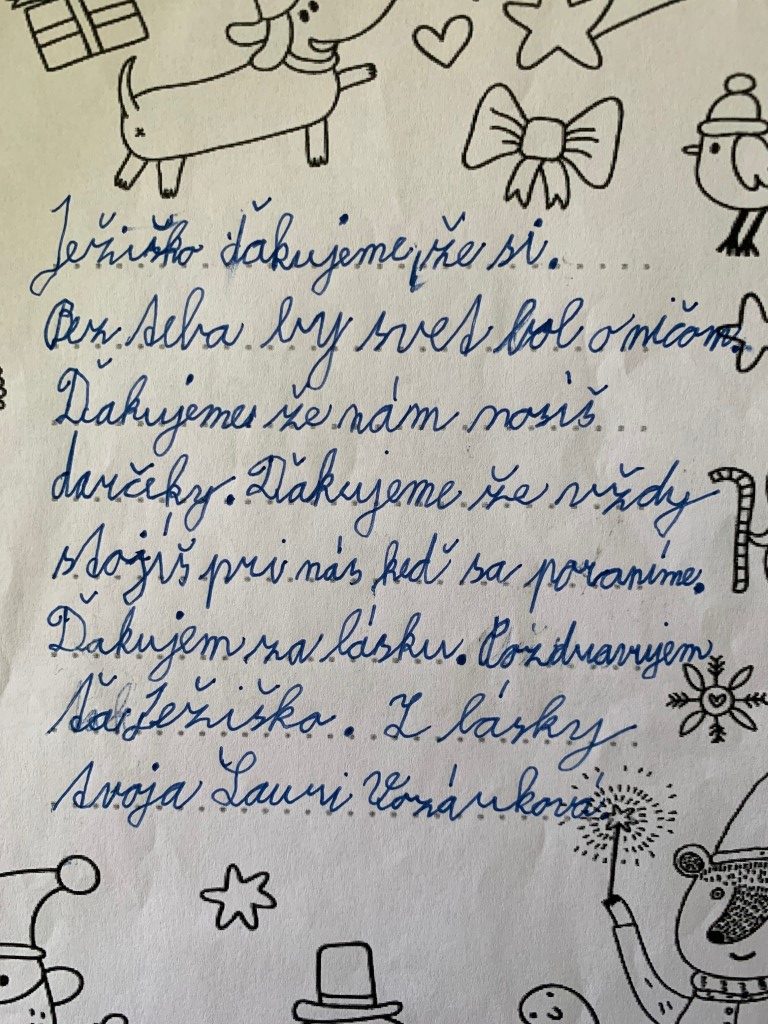 Ježiško ďakujeme, že si.
Bez teba by svet bol o ničom.
Ďakujeme že nám nosíš
darčeky. Ďakujeme že vždy
stojíš pri nás keď sa poraníme.
Ďakujem za lásku. Pozdravujem
ťa Ježiško. Z lásky
tvoja Lauri